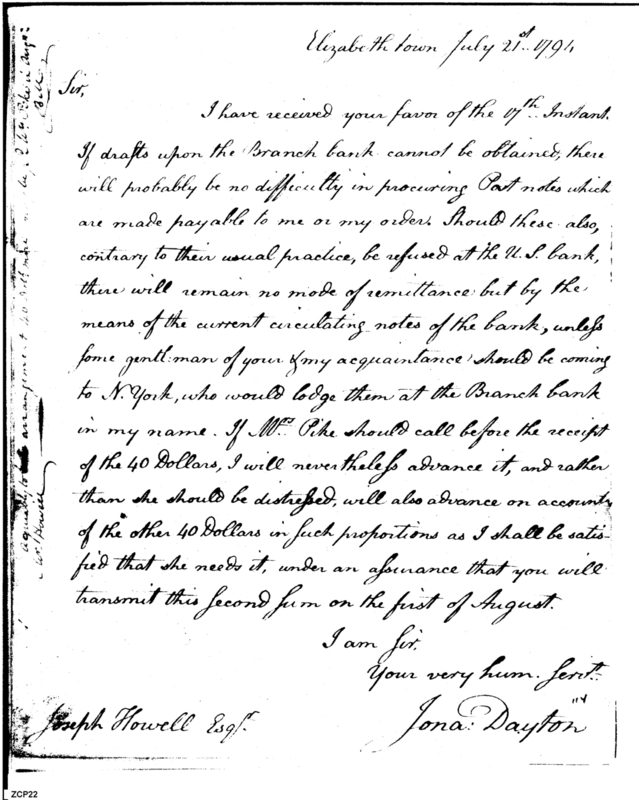 Elizabeth town July 21st 1794
Sir,
I have received your favor of the 17th Instant.
If drafts upon the Branch bank cannot be obtained, there
will probably be no difficulty in procuring Post notes which
are made payable to me or my order. Should these also,
contrary to their usual practice, be refused at the U.S. bank,
there will remain no mode of remittance but by the
means of the current circulating notes of the bank, unless
some gentleman of your & my acquaintance should be coming
to N. York, who would lodge them at the Branch bank
in my name. If Mrs. Pike should call before the receipt
of the 40 Dollars, I will nevertheless advance it, and rather
than she should be distressed, will also advance on account
of the other 40 Dollars in such proportions as I shall be satis-
fied that she needs it, under an assurance that you will
transmit this second sum on the first of August.
I am Sir.
Your very hum. Servt.
Jona: Dayton
Joseph Howell Esqr.
arrangement
ZCP22